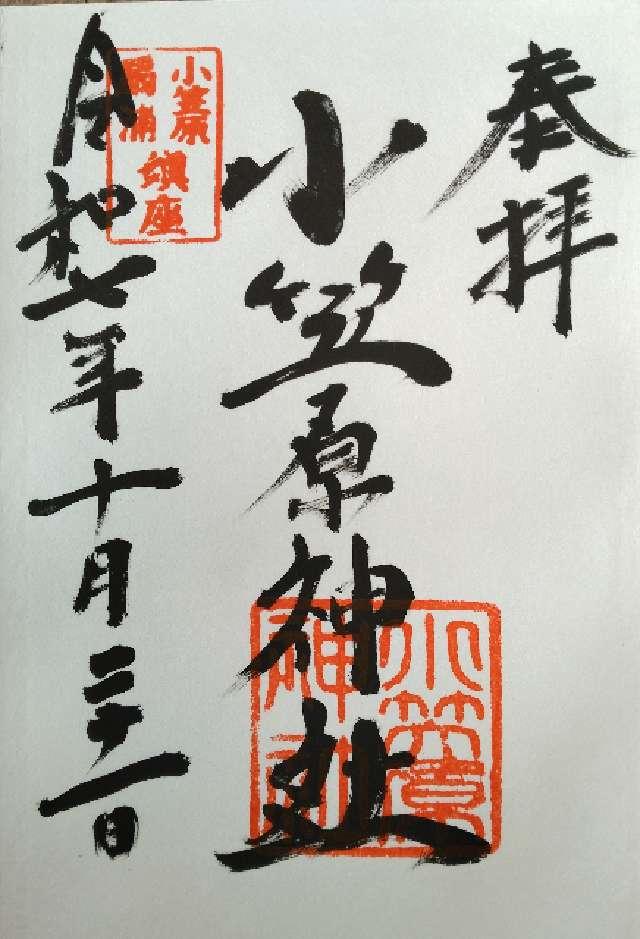 奉拝
小笠原神社
令和七年十月二十一日
小笠原
扇浦
鎮座
小笠原
神社